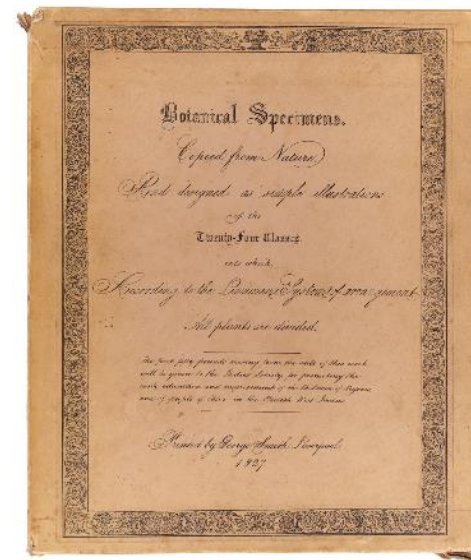 Botanical Specimens.
Copied from Nature,
And designed as simple illustrations
of the
Twenty-Four Classes.
into which,
According to the Linnæan System of arrangement
All plants are divided.
The first fifty pounds arising from the sale of this work
will be given to the Ladies Society for promoting the
early education and improvement of the Children of Negroes
and of people of color in the British West Indies
Printed by George Smith Liverpool
1827